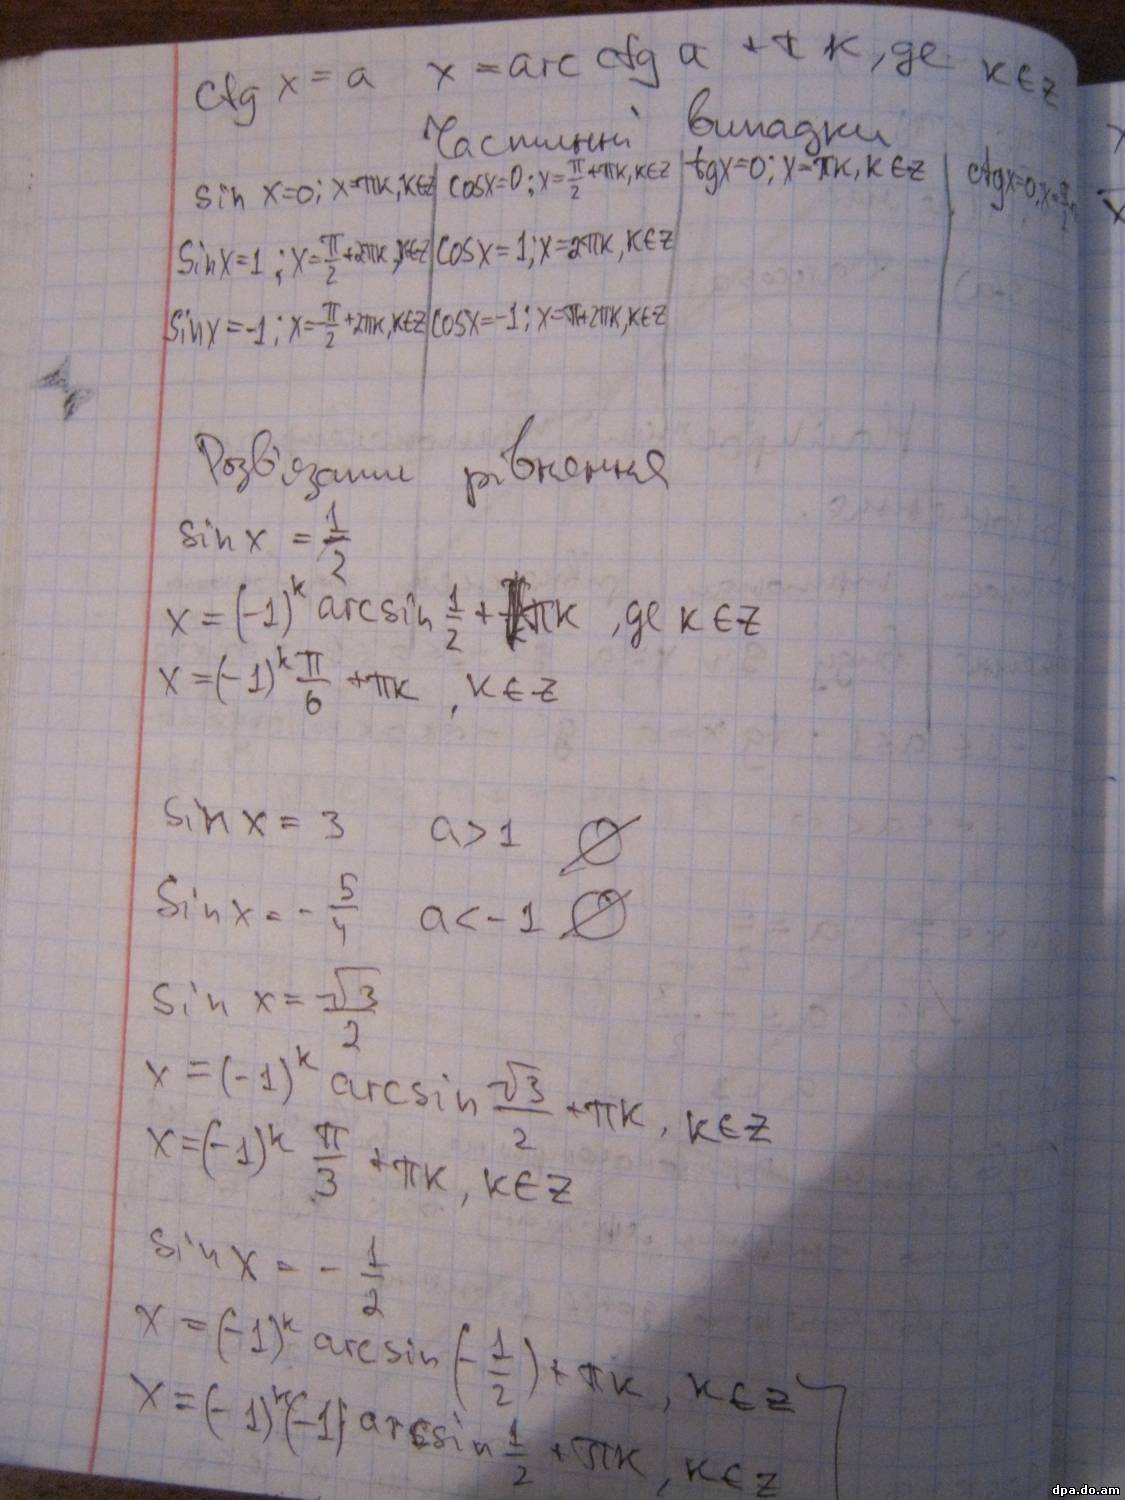 ctg x = a x = arc ctg a + πk, де k ∈ Z
Частинні випадки
sin x=0; x=πk, k∈Z cos x=0; x=π/2+πk, k∈Z tg x=0; x=πk, k∈Z ctg x=0, x=π/2
sin x=1; x=π/2+2πk, k∈Z cos x=1; x=2πk, k∈Z
sin x=-1; x=-π/2+2πk, k∈Z cos x=-1; x=π+2πk, k∈Z
Розв'язати рівняння
sin x = 1/2
x = (-1)^k arcsin 1/2 + πk, де k ∈ Z
x = (-1)^k π/6 + πk, k ∈ Z
sin x = 3 a > 1 ∅
sin x = - 5/4 a < -1 ∅
sin x = √3/2
x = (-1)^k arcsin √3/2 + πk, k ∈ Z
x = (-1)^k π/3 + πk, k ∈ Z
sin x = - 1/2
x = (-1)^k arcsin (-1/2) + πk, k ∈ Z
x = (-1)^k (-1) arcsin 1/2 + πk, k ∈ Z
dpa.do.am